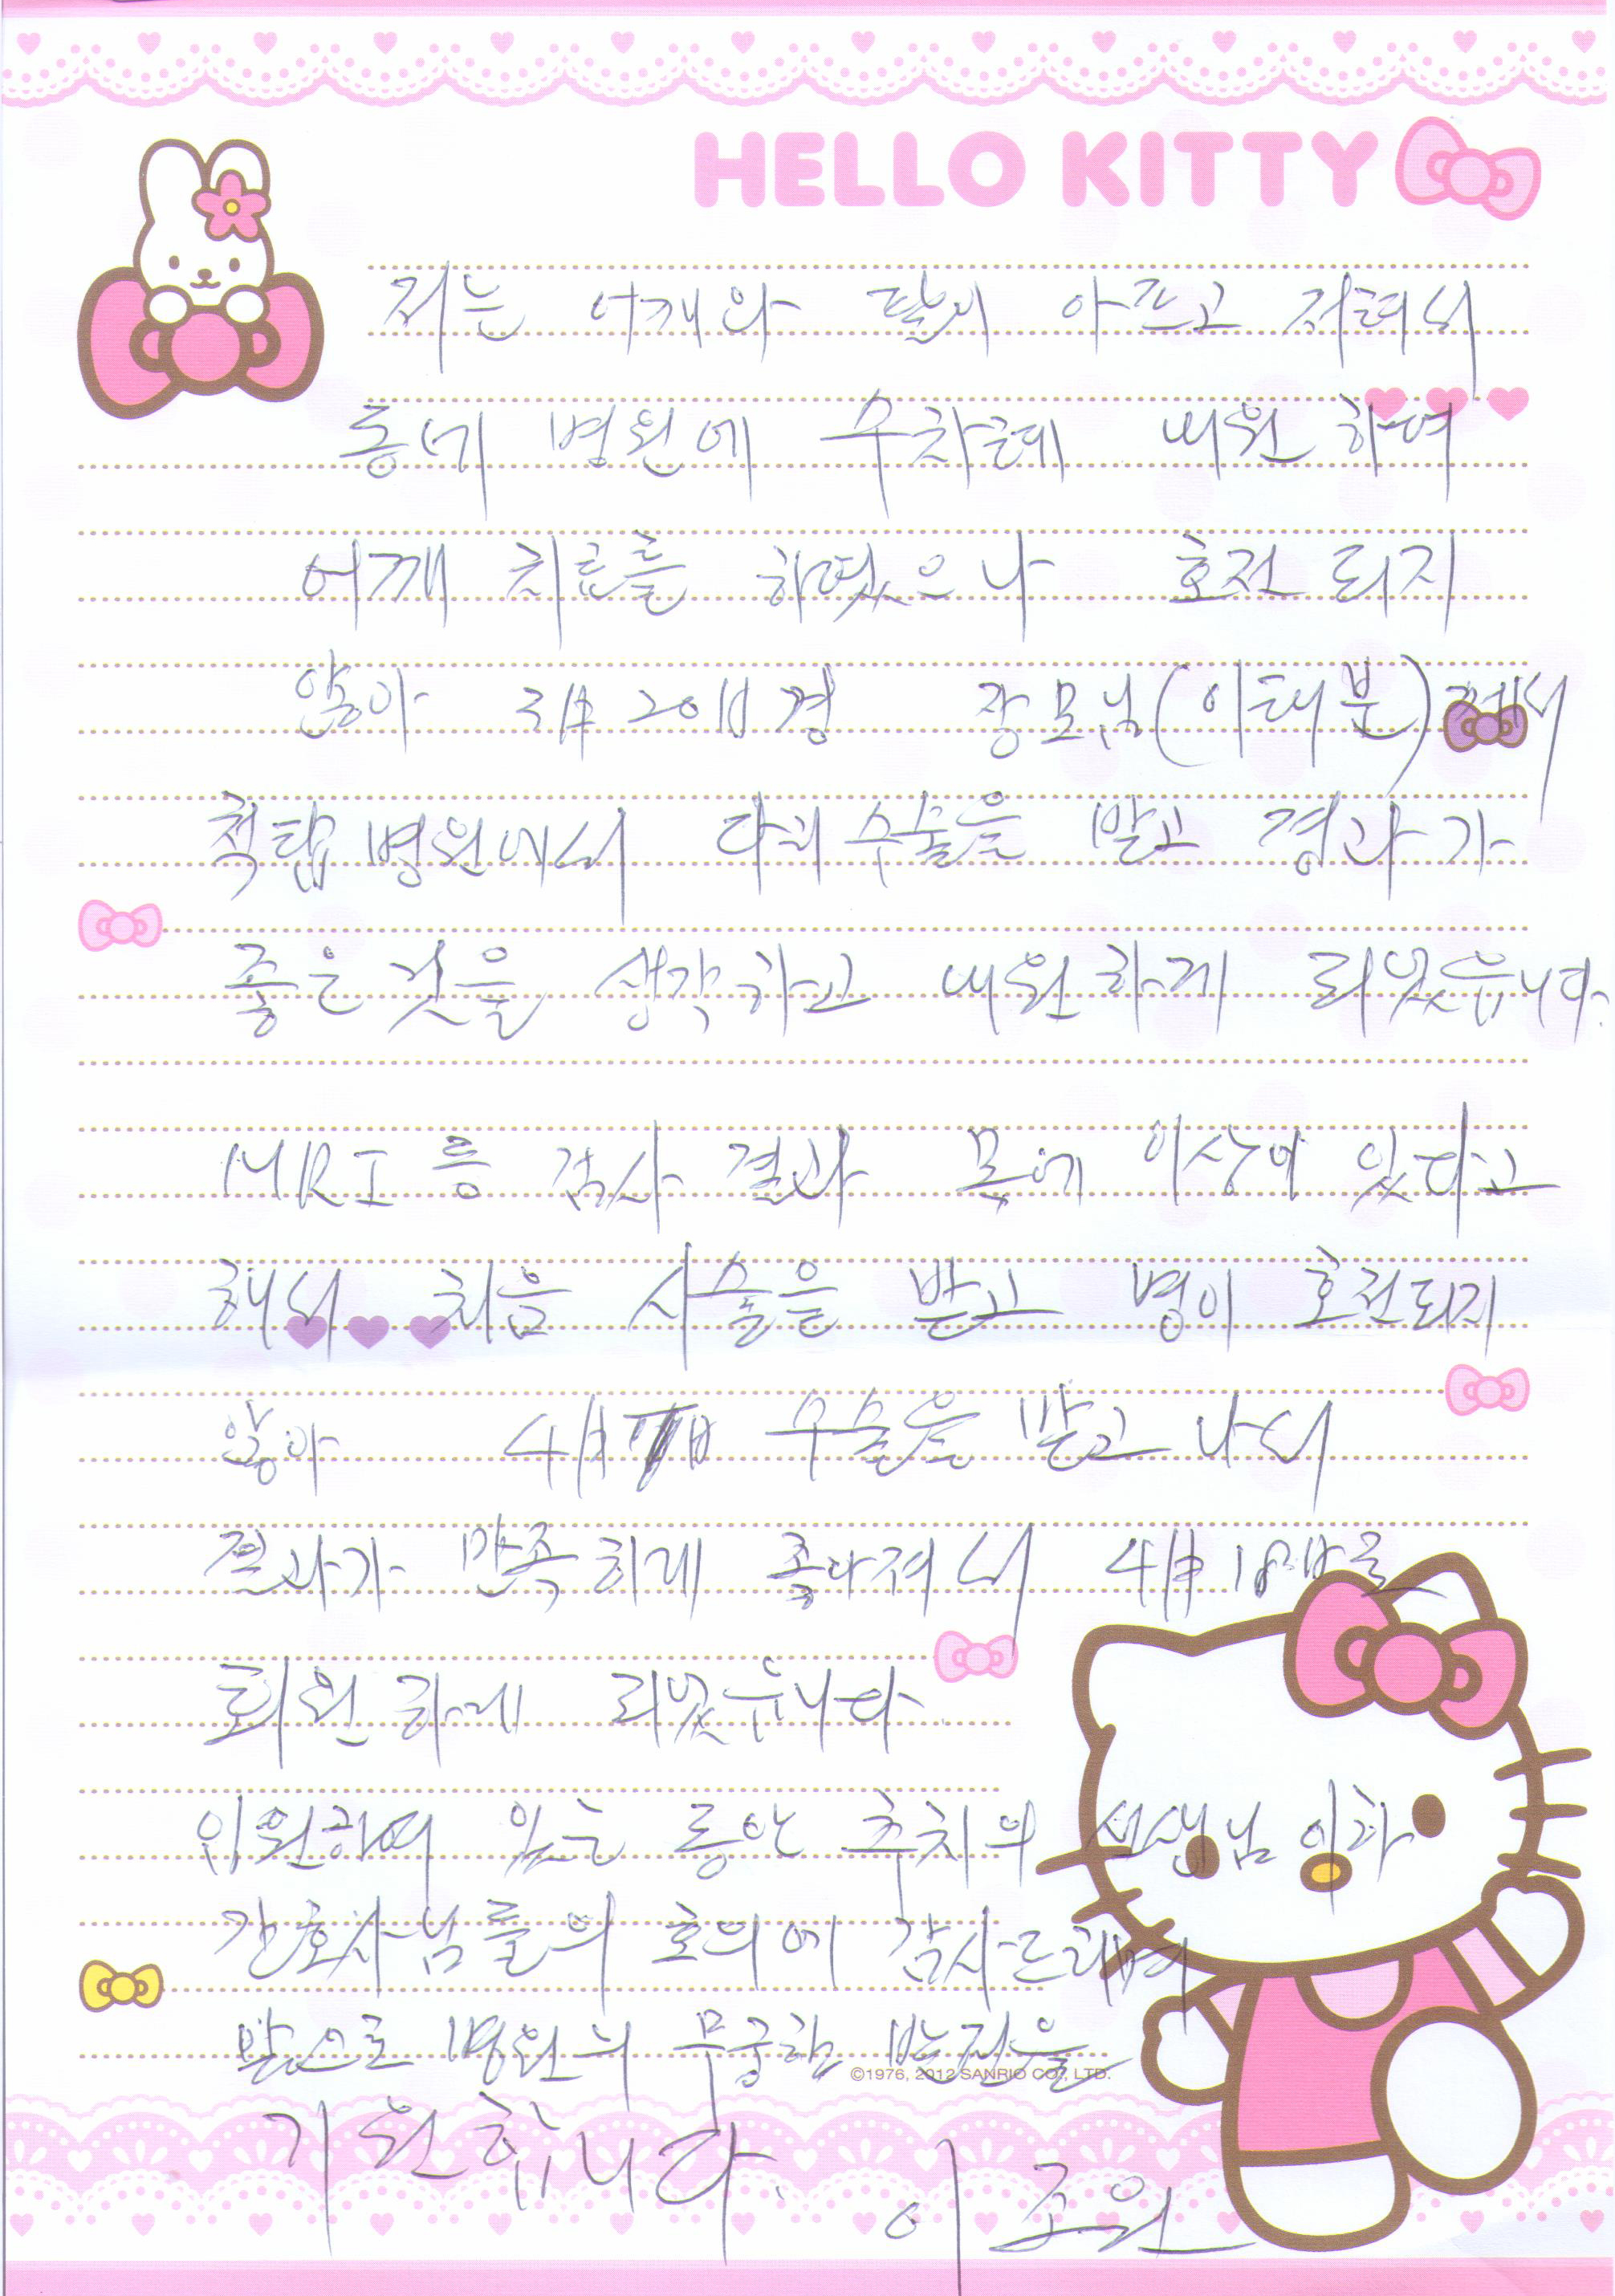 HELLO KITTY
저는 어깨와 팔이 아프고 저려서
동네 병원에 수차례 내원하여
어깨 치료를 하였으나 호전되지
않아 3月 20日경 장모님(이태분)께서
척탑병원에서 다리수술을 받고 경과가
좋은것을 생각하고 내원하게 되었습니다.
MRI 등 검사 결과 목에 이상이 있다고
해서 처음 시술을 받고 병이 호전되지
않아 4月 日 수술을 받고 나서
결과가 만족하게 좋아져서 4月 18日
퇴원하게 되었습니다.
입원하여 있는 동안 선생님 이하
간호사님들의 호의에 감사드리며
앞으로 병원의 무궁한 발전을
©1976, 2012 SANRIO CO., LTD.
기원합니다. 이